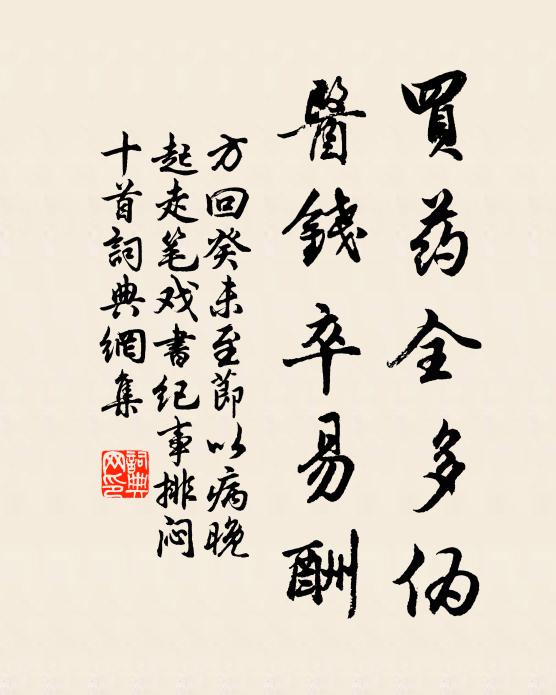 買药全多伪
醫錢卒易酬
方回癸未至節以病晚
起走笔戏書纪事排闷
十首詞典網集
詞典网印